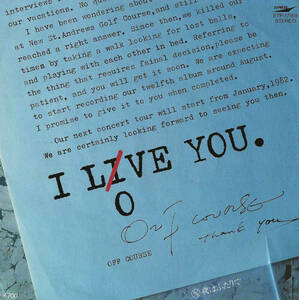 interviews
our vacations. No
I have been wondering about
at New St.Andrews Golf Course,and still
reached a right answer. Since then,we killed our
times by taking a walk looking for lost balls,
and playing with each other in bed. Referring to
the thing that requires fainal decision,please be
patient, and you will get it soon. We are expecting
to start recording our twelfth album around august.
I promise to give it to you when completed.
Our next concert tour will start from January,1982.
We are certainly looking forward to seeing you then.
I LIVE YOU.
O
OFF COURSE
Thank you
OFF COURSE
¥700
STEREO